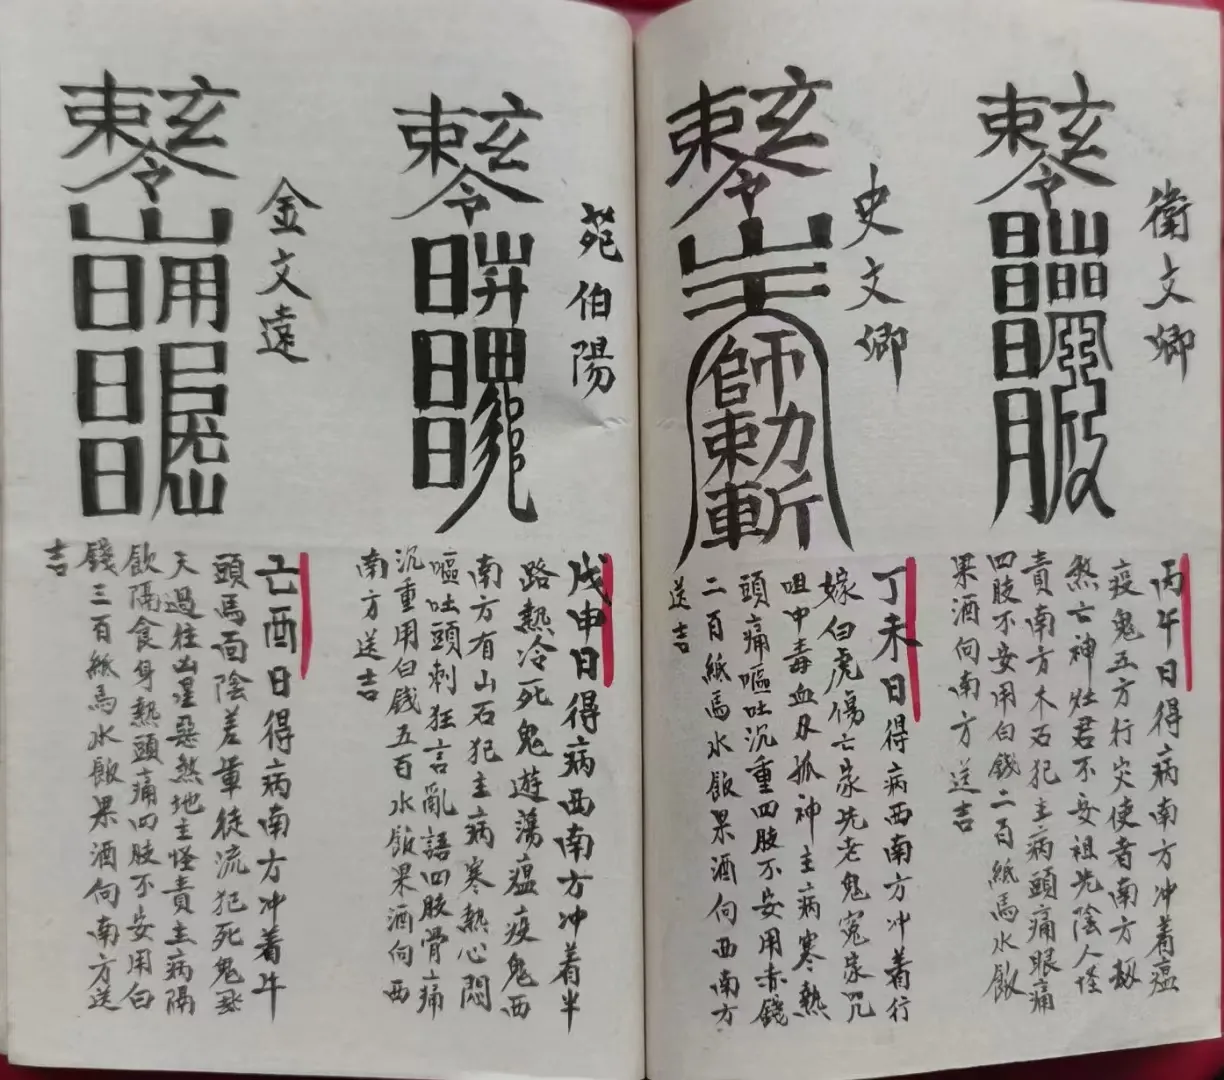 衛文卿
丙午日得病南方冲着瘟
疫鬼五方行灾使者南方
煞亡神灶君不安祖先陰人怪
責南方木石犯主病頭痛眼痛
四肢不安用白錢二百紙馬水飯
果酒向南方送吉
史文卿
師勅斬
丁未日得病西南方冲着行
嫁白虎傷亡家先老鬼冤家咒
咀中毒血刃孤神主病寒熱
頭痛嘔吐沉重四肢不安用赤錢
二百紙馬水飯果酒向西南方
送吉
苑伯陽
戊申日得病西南方冲着半
路熱冷死鬼遊蕩瘟疫鬼西
南方有山石犯主病寒熱心悶
嘔吐頭刺狂言亂語四肢骨痛
沉重用白錢五百水飯果酒向西
南方送吉
金文遠
己酉日得病南方冲着牛
頭馬面陰差軍徒流犯死鬼
天過往凶星惡煞地主怪責主病隔
飲隔食身熱頭痛四肢不安用白
錢三百紙馬水飯果酒向南方送
吉